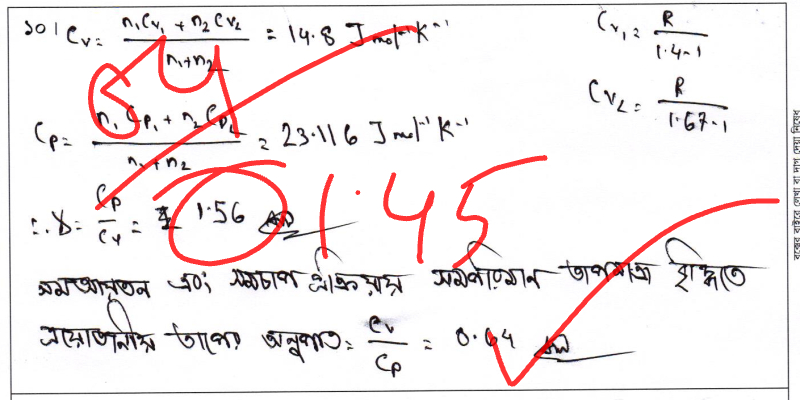 ১০। Cv = (n₁Cv₁ + n₂Cv₂)/(n₁+n₂) = 14.8 Jmol⁻¹K⁻¹
Cv₁ = R/(1.4-1)
Cv₂ = R/(1.67-1)
Cp = (n₁Cp₁ + n₂Cp₂)/(n₁+n₂) = 23.116 Jmol⁻¹K⁻¹
∴ γ = Cp/Cv = 1.56
1.45
সমআয়তন এবং সমচাপ প্রক্রিয়ায় সমপরিমান তাপমাত্রা বৃদ্ধিতে
প্রয়োজনীয় তাপের অনুপাত = Cv/Cp = 0.64
বক্সের বাইরে লেখা বা দাগ দেয়া নিষেধ